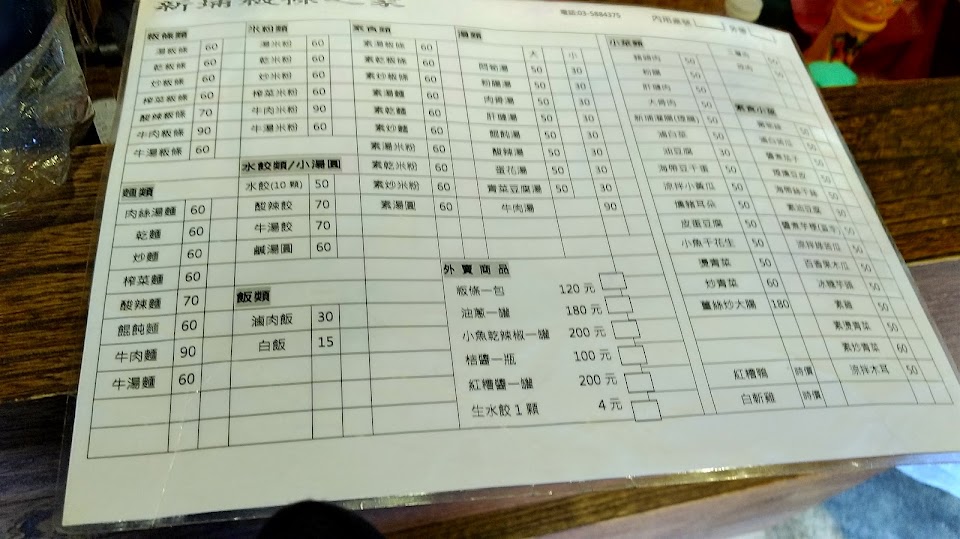 新埔粄條之家
電話:03-5884275
內用桌號
粄條類
湯粄條 60
乾粄條 60
炒粄條 60
榨菜粄條 60
酸辣粄條 70
牛肉粄條 90
牛湯粄條 60
麵類
肉絲湯麵 60
乾麵 60
炒麵 60
榨菜麵 60
酸辣麵 70
餛飩麵 60
牛肉麵 90
牛湯麵 60
米粉類
湯米粉 60
乾米粉 60
炒米粉 60
榨菜米粉 60
牛肉米粉 90
牛湯米粉 60
水餃類/小湯圓
水餃(10顆) 50
酸辣餃 70
牛湯餃 70
鹹湯圓 60
飯類
滷肉飯 30
白飯 15
素食類
素湯粄條 60
素乾粄條 60
素炒粄條 60
素湯麵 60
素乾麵 60
素炒麵 60
素湯米粉 60
素乾米粉 60
素炒米粉 60
素湯圓 60
湯類
大 小
50 30
粉腸湯 50 30
肉骨湯 50 30
肝腱湯 50 30
餛飩湯 50 30
酸辣湯 50 30
蛋花湯 50 30
青菜豆腐湯 50 30
牛肉湯 90
外賣商品
粄條一包 120元
油蔥一罐 180元
小魚乾辣椒一罐 200元
桔醬一瓶 100元
紅糟醬一罐 200元
生水餃1顆 4元
小菜類
豬頭肉 50
粉腸 50
肝腱肉 50
大骨肉 50
50
滷白菜 50
油豆腐 30
海帶豆干蛋 50
涼拌小黃瓜 50
豬耳朵 50
皮蛋豆腐 50
小魚干花生 50
燙青菜 50
炒青菜 60
薑絲炒大腸 180
紅糟鴨 時價
白斬雞 時價
50
50
素食小菜
50
50
50
50
50
50
50
涼拌綠苦瓜 50
百香果木瓜 50
冰糖芋頭 50
素雞 50
素燙青菜 50
素炒青菜 60
涼拌木耳 50